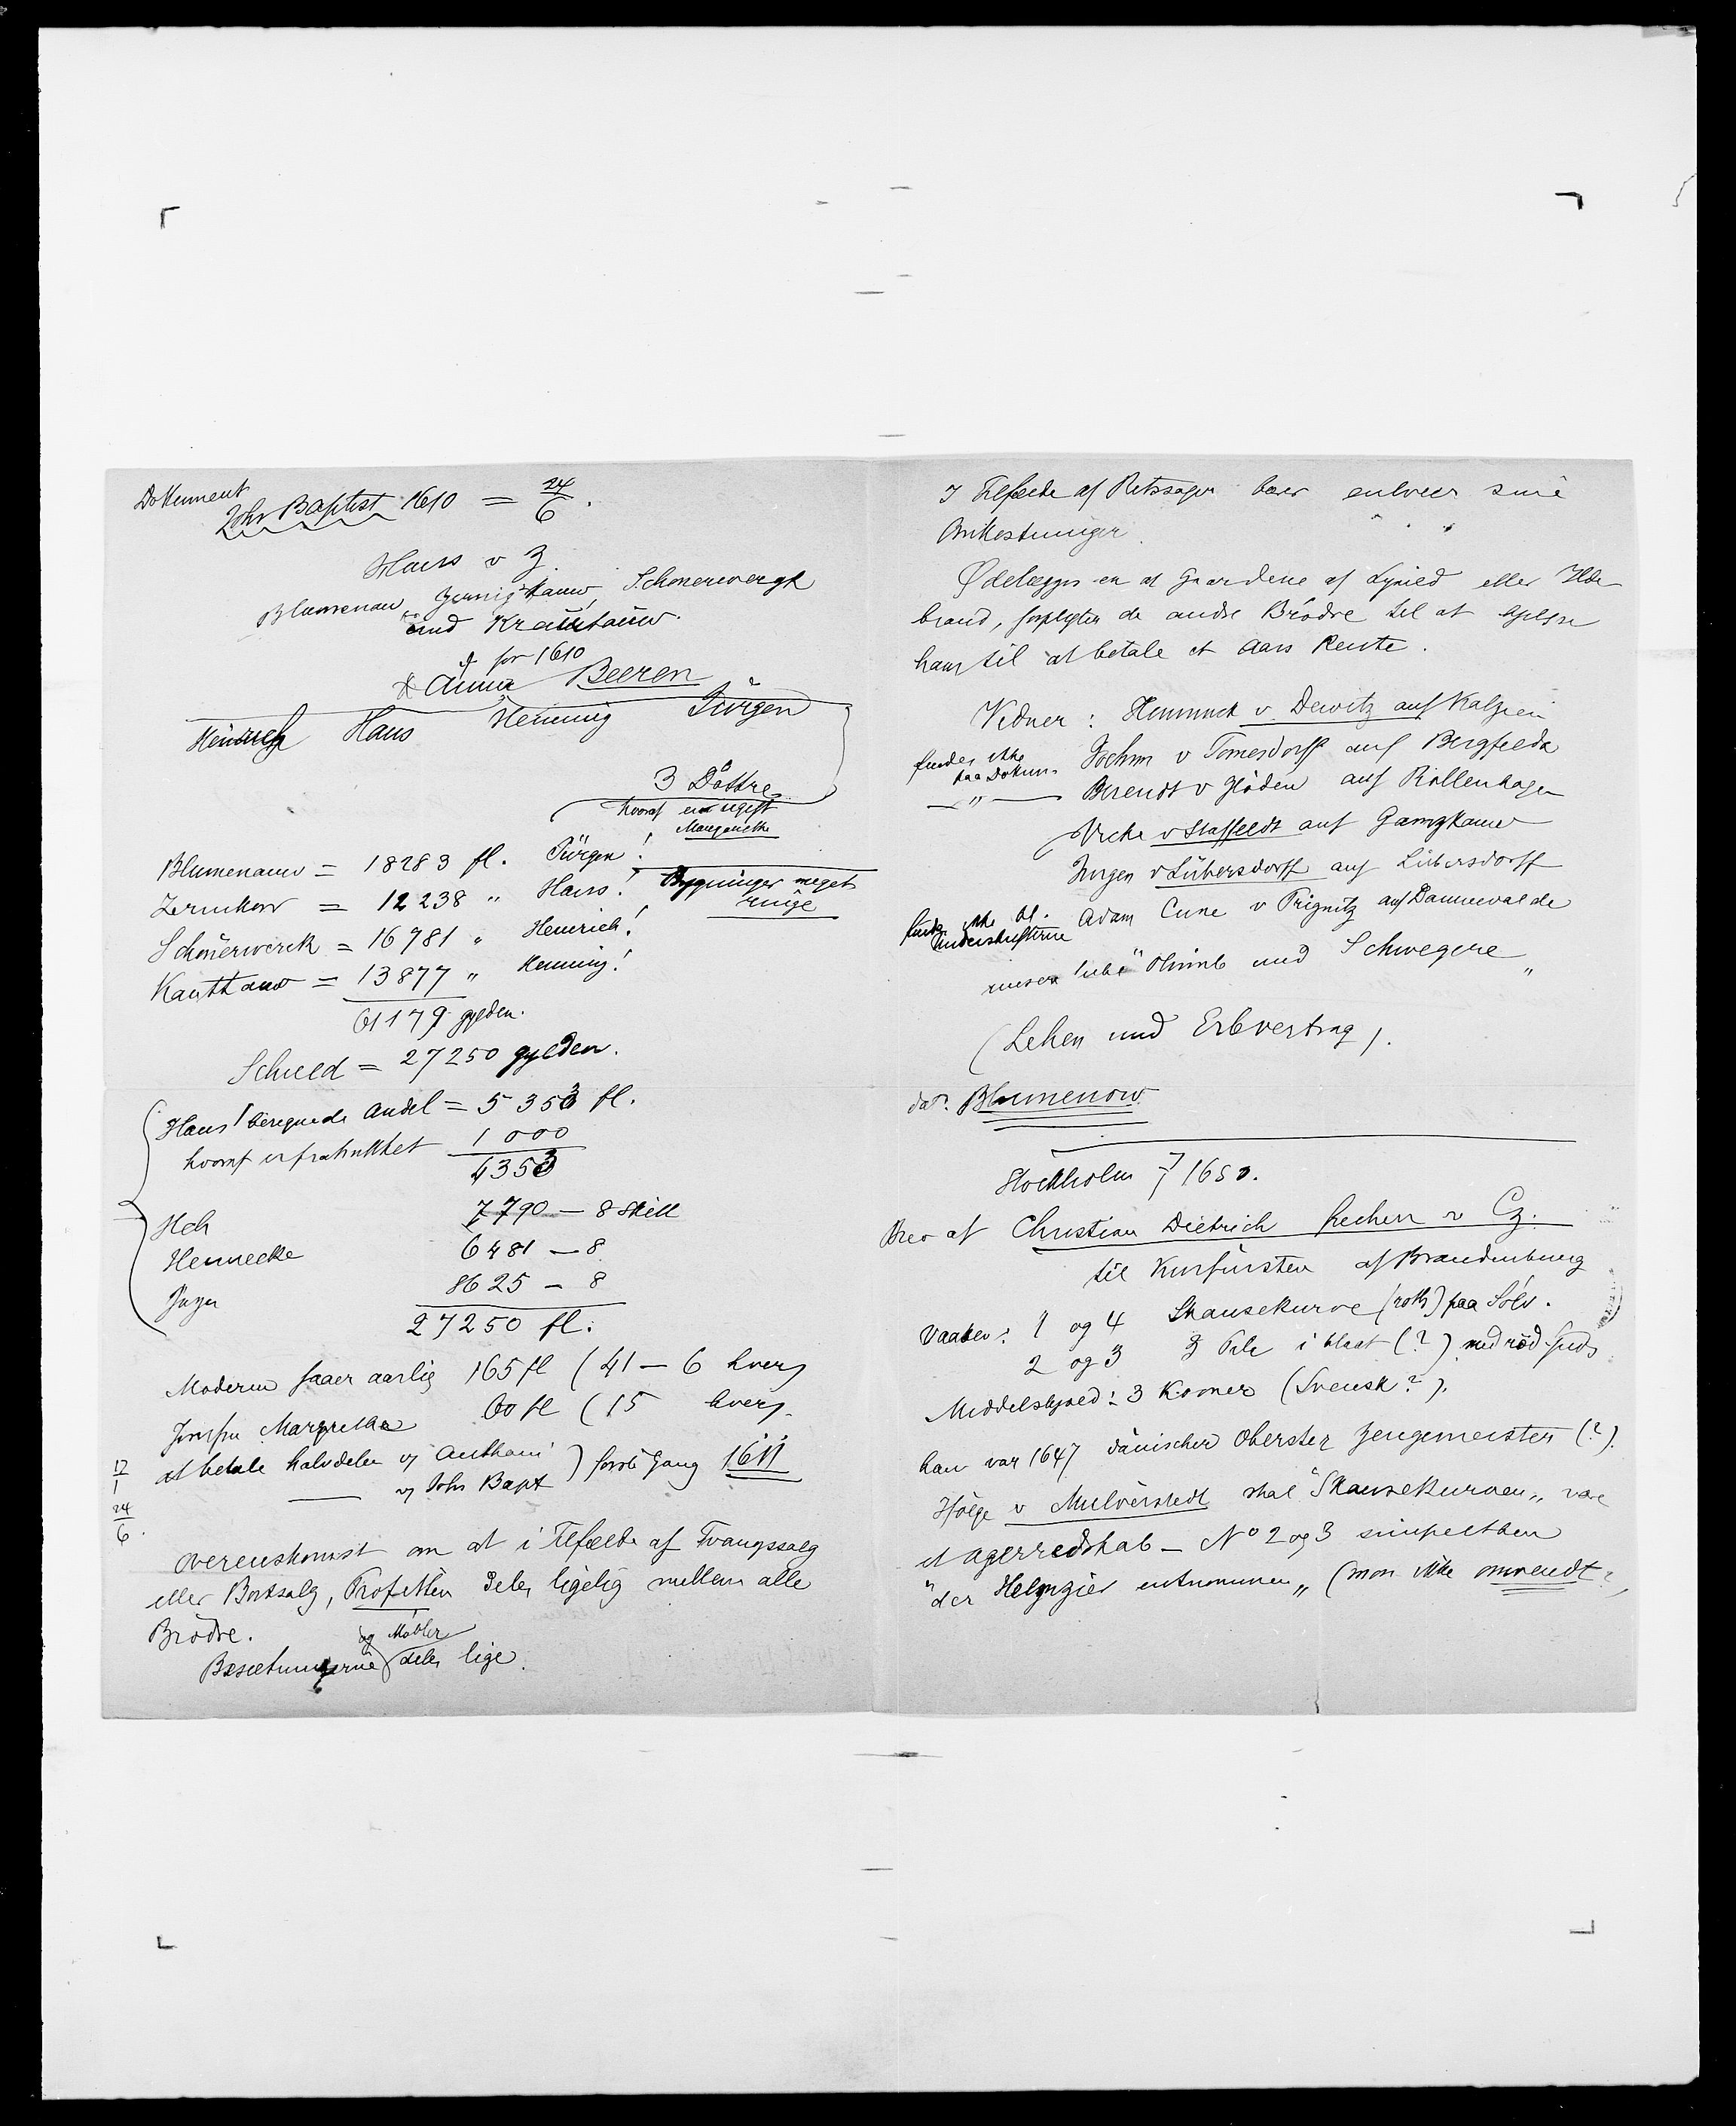 Dokument
Johs Baptist 1610 = 24/6.
Hans v Z.
Blumenau, Zernigkauw, Schonerwergk
und Krauttauw.
d. før 1610
* Anna Beeren
Heinrich Hans Henning Jürgen
3 Døttre
hvoraf en ugift
Margarethe
Blumenauw = 18283 fl. Jürgen!
Zernikow = 12238 " Hans! Bygninger meget
ringe
Schönerwerck = 16781 " Heinrich!
Kautt auw = 13877 " Henning!
61179 gylden.
Schuld = 27250 gylden.
Hans' beregnede Andel = 5353 fl.
hvoraf er fratrukket 1000
4353
Hch 7790 — 8 skill
Hennecke 6481 — 8
Jürgen 8625 — 8
27250 fl.
Moderen faaer aarlig 165 fl (41 — 6 hver)
Jomfru Margrethe 60 fl (15 hver)
17/1 at betale halvdelen v Anthoni
24/6. — v Johs Bapt ) første Gang 1611
Overenskomst om at i Tilfælde af Tvangssalg
eller Bortsalg, Profitten deles ligelig mellem alle
Brødre.
og Møbler
Besætningerne deles lige.
I Tilfælde af Retssager bær enhver sine
Omkostninger.
Ødelægges en af Gaardene af Lynild eller Ilde-
brand, forpligter de andre Brødre sig at hjelpe
ham til at betale et Aars Rente.
Vidner: Henninck v. Dewitz auf Kalzien
findes ikke
paa Dokum. Jochim v Tornesdorff auf Bergfelde
— " — Berendt v Glöden auf Rollenhagen
Vicke v Staffeldt auf Gamzkauw
Jurgen v Lübersdorff auf Lübersdorff
findes ikke bl.
Underskrifterne Adam Cune v Prignitz auf Dannewalde
unsere liebe Ohimb und Schwegere "
(Lehen und Erbvertrag).
dat. Blumenow
Stockholm 7/1 1650.
Brev af Christian Dietrich freiherr v Cz.
til Kurfürsten af Brandenburg
Vaaben: 1 og 4 Skansekurve (roth) paa Sølv.
2 og 3 3 Pile i blaat (?) med rød
Middelskjold: 3 Kroner (Svensk?).
han var 1647 dänischer Oberster Zeugemeister (?).
Ifølge v Mulverstedt skal "Skansekurven" være
et agerredskab — No 2 og 3 simpelthen
"der Helmzier entnommen" (mon ikke omvendt?)